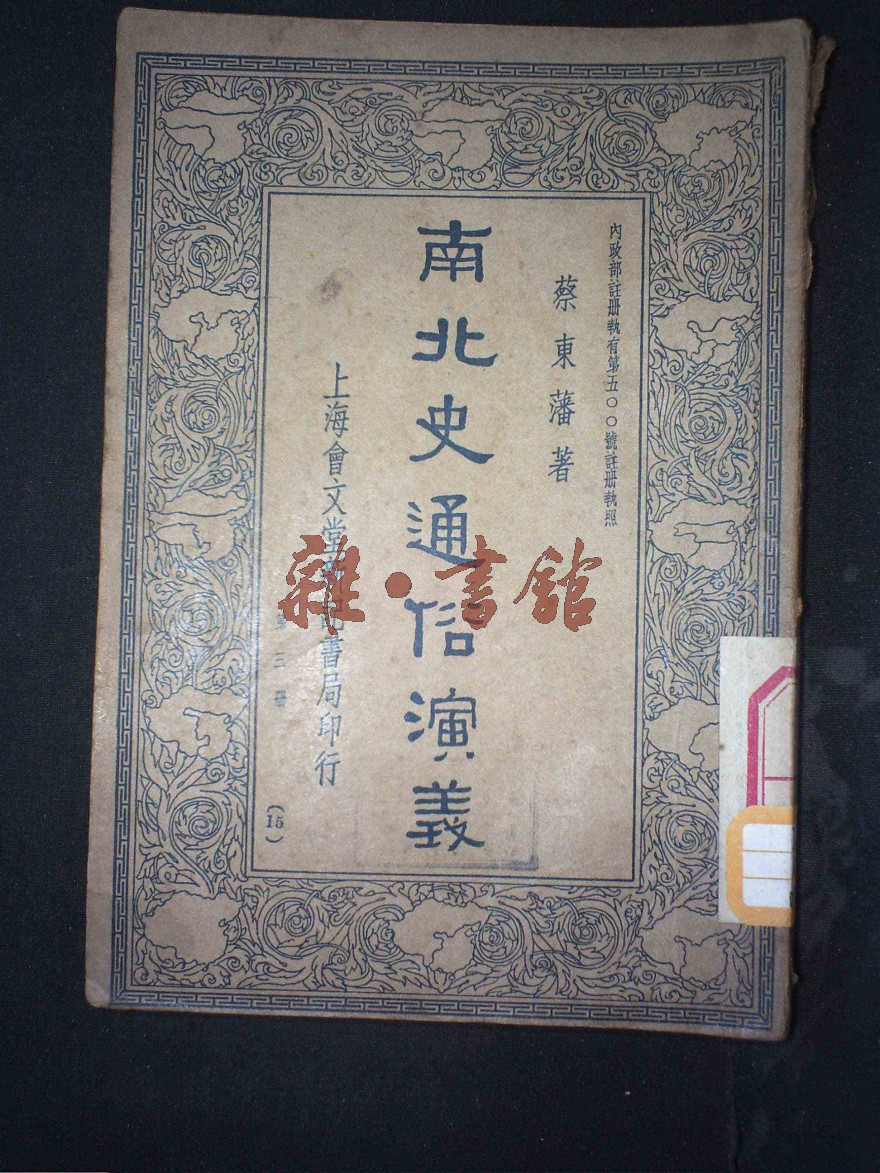 內政部註册執有第五〇〇號註册執照
蔡東藩著
南北史通俗演義
上海會文堂新記書局印行
第三册
(15)
雜·書館